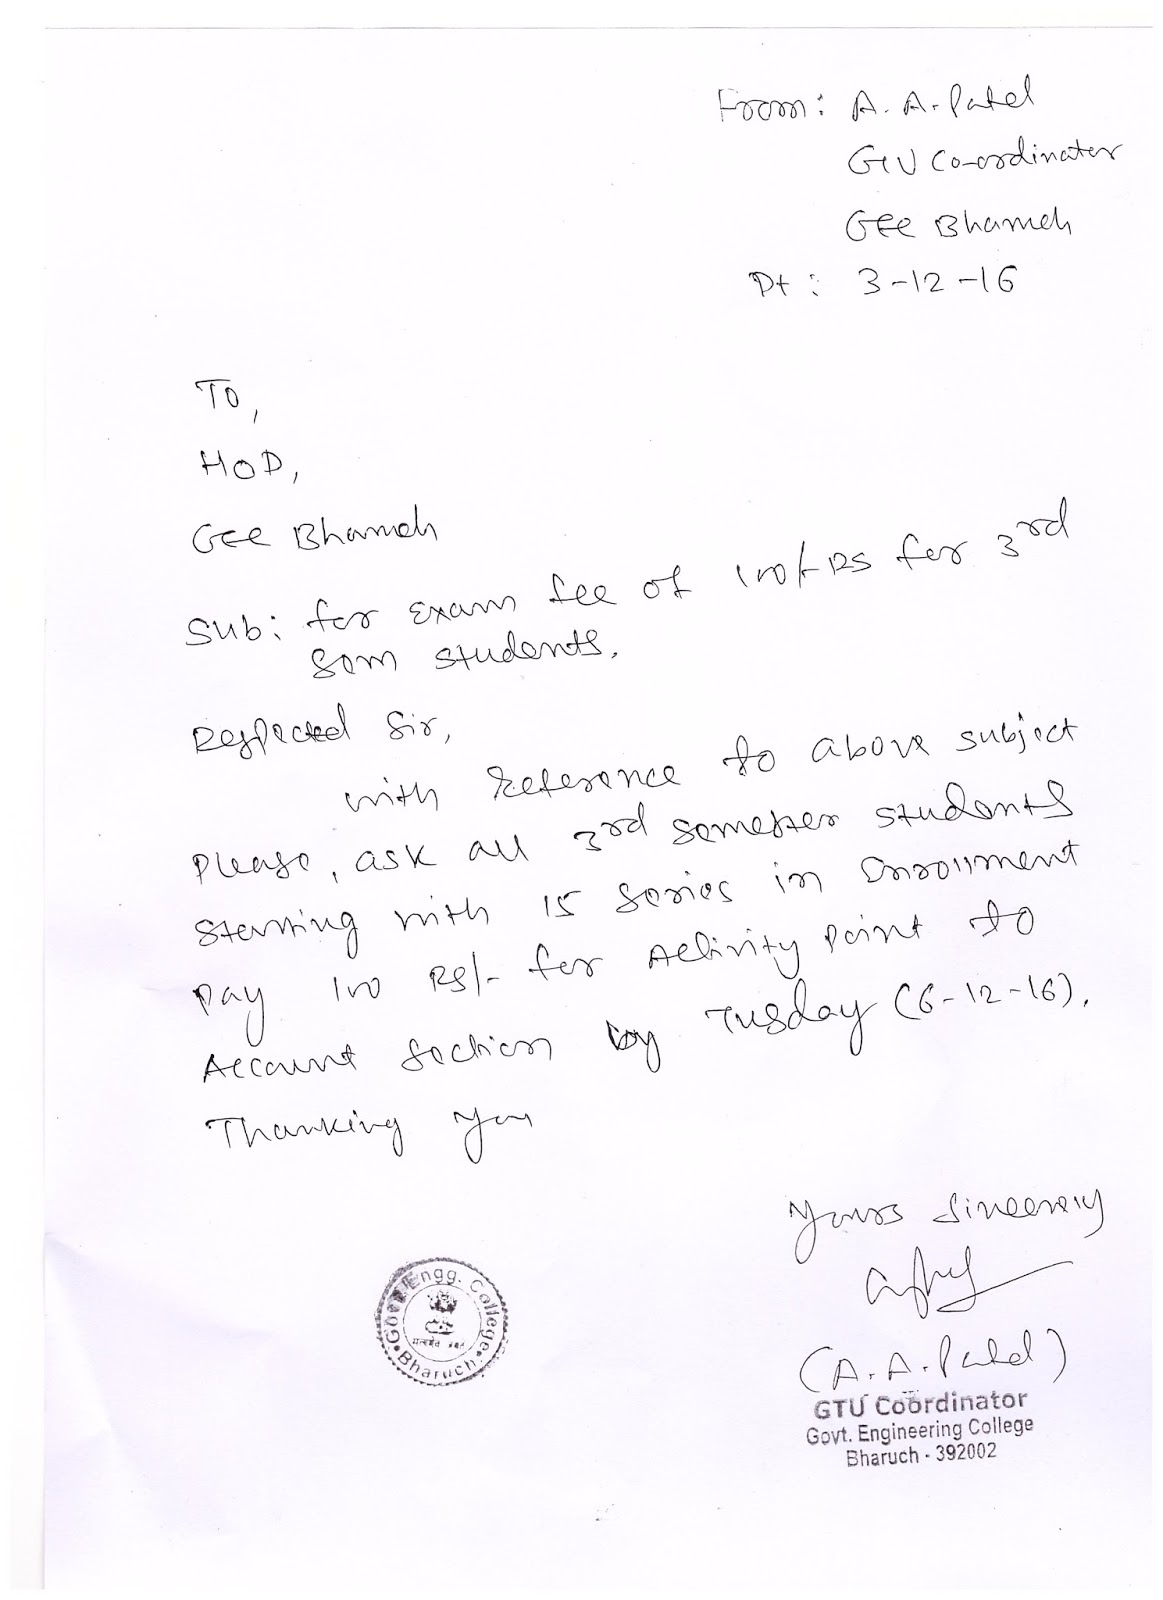 From: A. A. Patel
GTU Co-ordinator
GEC Bharuch
Dt: 3-12-16
To,
HOD,
GEC Bharuch
Sub: for exam fee of 100/- RS for 3rd
Sem students.
Respected Sir,
with reference to above subject
please, ask all 3rd semester students
starting with 15 series in Enrollment
pay 100 RS/- for Activity point to
Account section by Tusday (6-12-16).
Thanking you
Yours Sincerely
(A. A. Patel)
GTU Coordinator
Govt. Engineering College
Bharuch - 392002
Govt. Engg. College
Bharuch